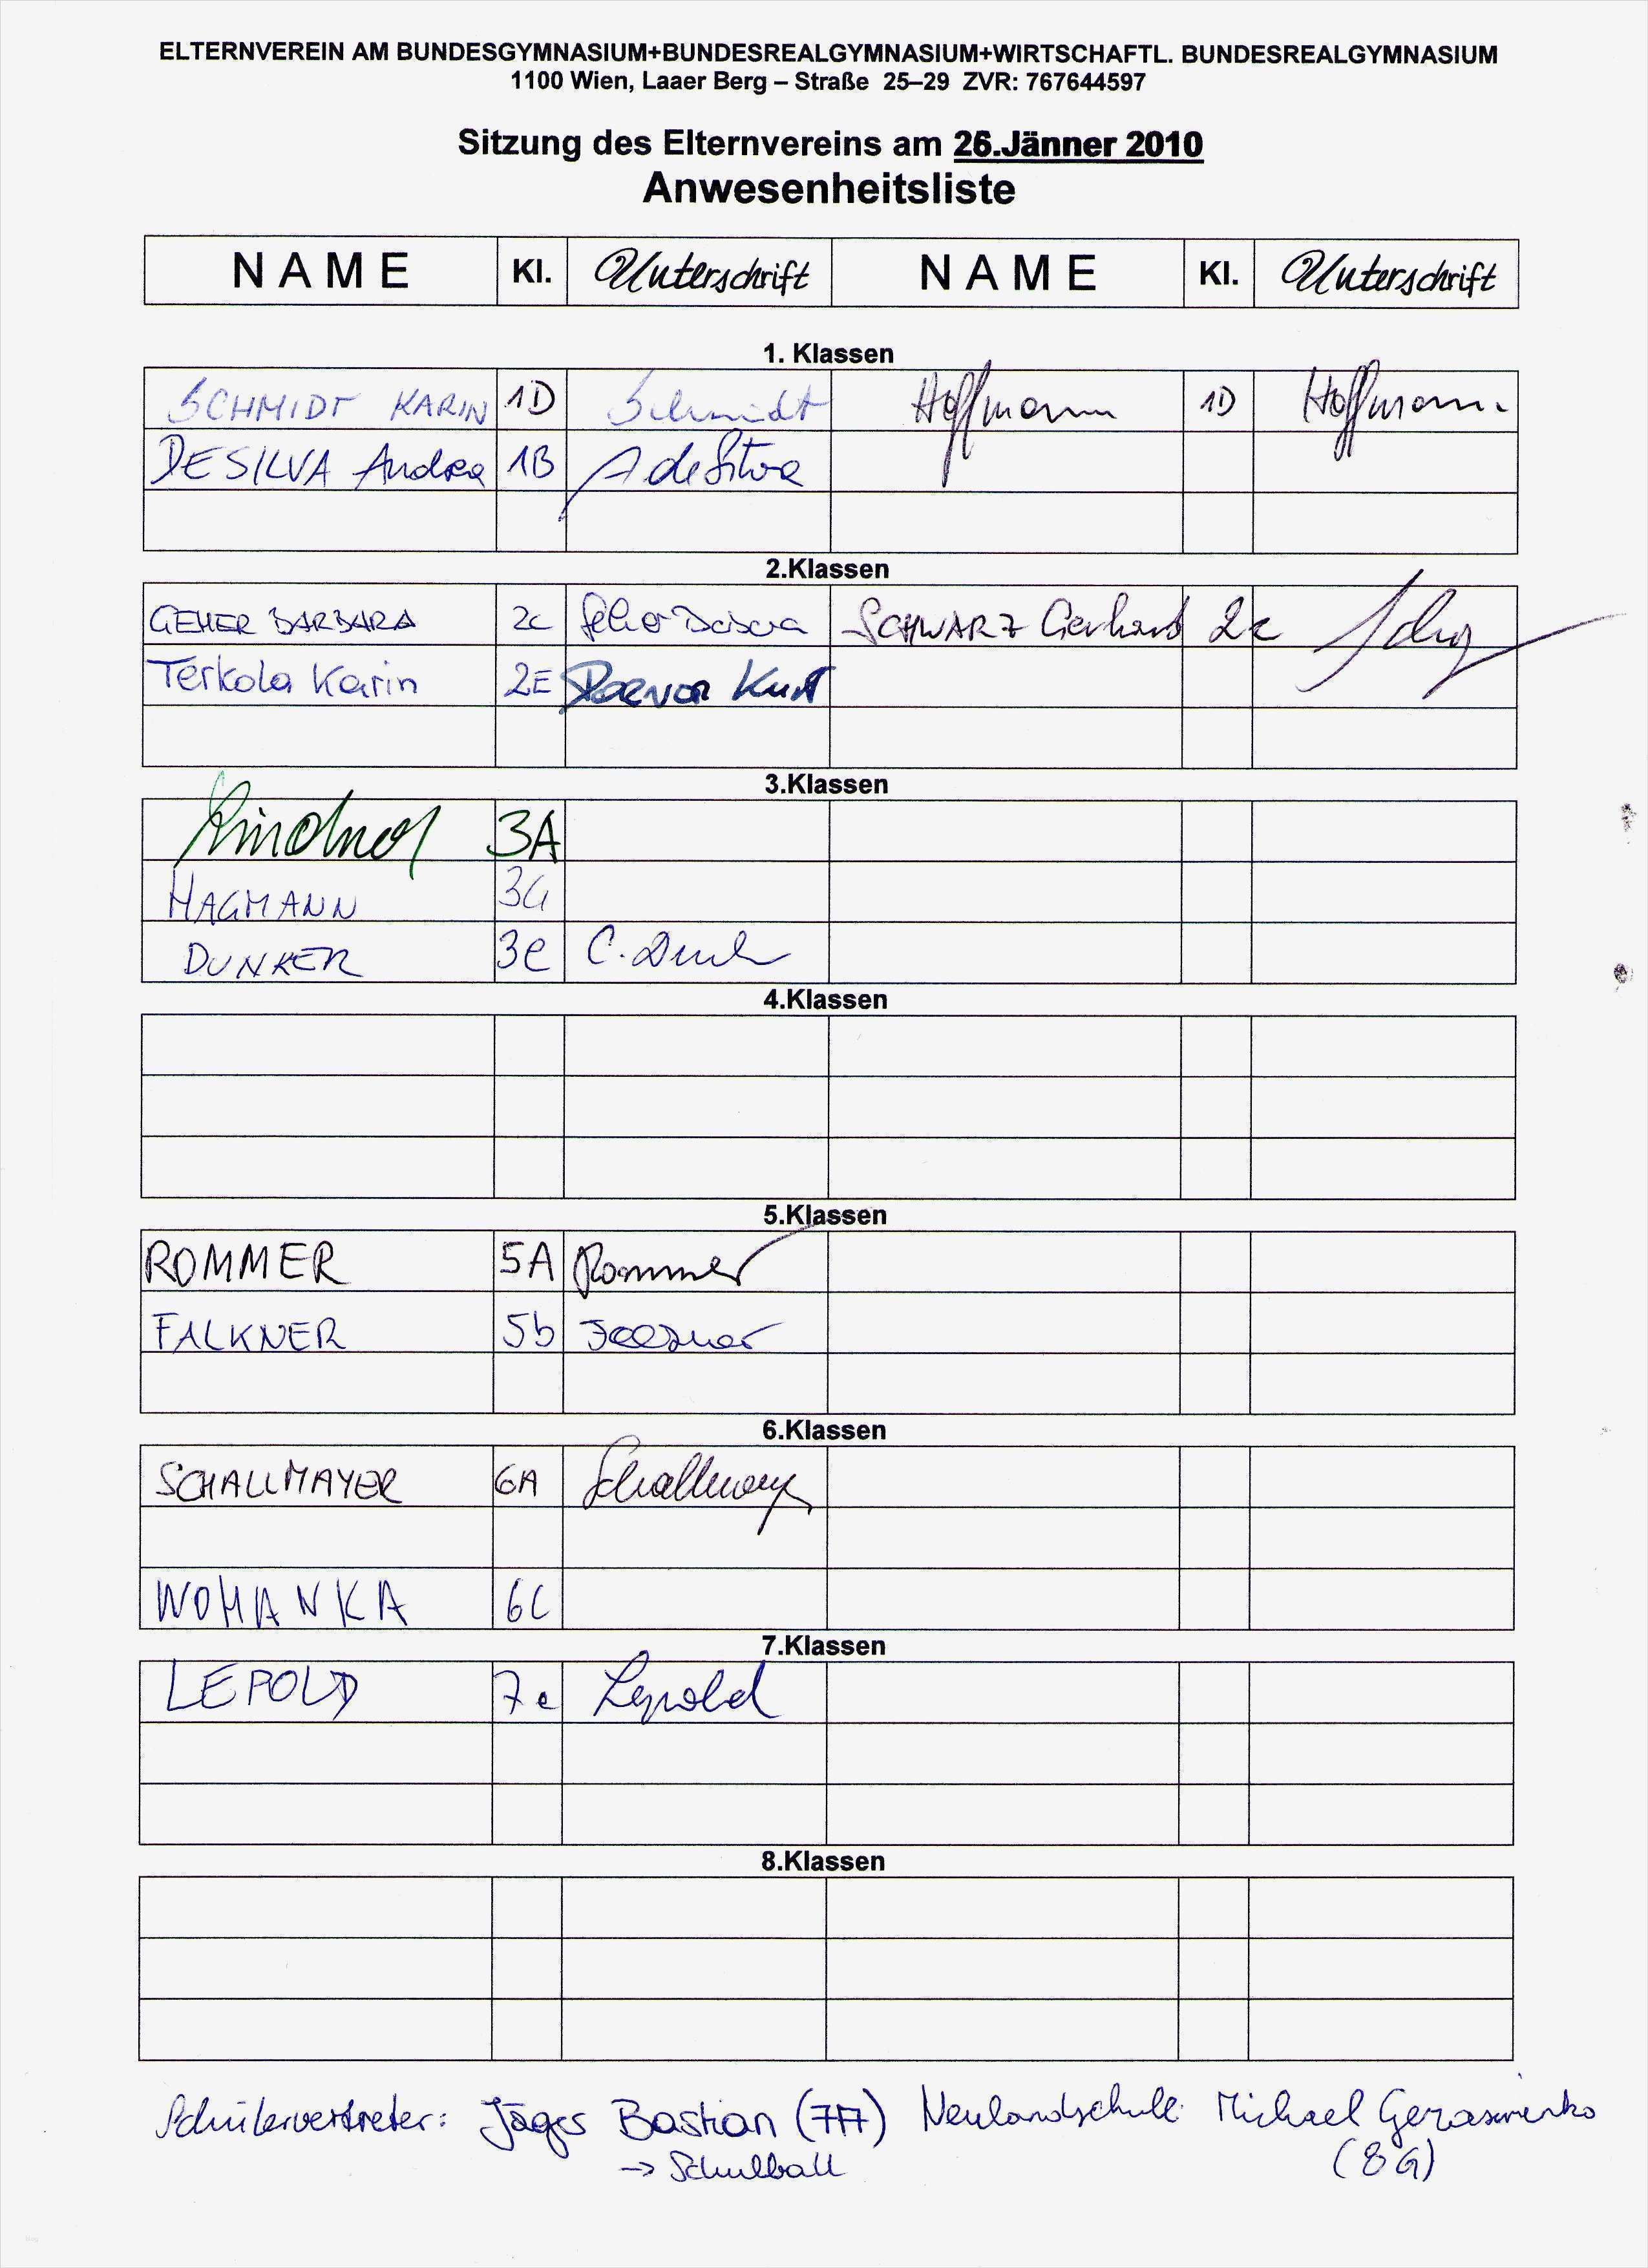 ELTERNVEREIN AM BUNDESGYMNASIUM+BUNDESREALGYMNASIUM+WIRTSCHAFTL. BUNDESREALGYMNASIUM
1100 Wien, Laaer Berg – Straße 25–29 ZVR: 767644597
Sitzung des Elternvereins am 26.Jänner 2010
Anwesenheitsliste
NAME Kl. Unterschrift NAME Kl. Unterschrift
1. Klassen
SCHMIDT KARIN 1D Schmidt Hoffmann 1D Hoffmann
DESILVA Andrea 1B A de Silva
2.Klassen
GEHER BARBARA 2c SCHWARZ Gerhard 2c
Terkola Karin 2E Kurt
3.Klassen
3A
HAGMANN 3G
DUNKER 3e C.
4.Klassen
5.Klassen
ROMMER 5A Rommer
FALKNER 5b Falkner
6.Klassen
SCHALLMAYER 6A Schallmayer
WOHANKA 6C
7.Klassen
LEPOLD 7e Lepold
8.Klassen
Schülervertreter: Jäger Bastian (7A) Neulandschule: Michael Gerasimenko
→ Schulball (8G)